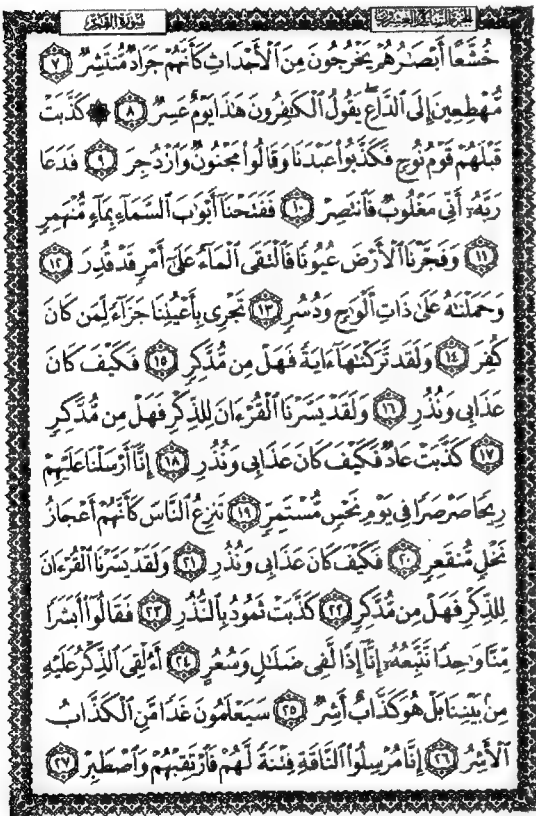 الجزء السابع والعشرين
سورة القمر
خُشَّعًا أَبْصَٰرُهُمْ يَخْرُجُونَ مِنَ ٱلْأَجْدَاثِ كَأَنَّهُمْ جَرَادٌ مُّنتَشِرٌ ٧
مُّهْطِعِينَ إِلَى ٱلدَّاعِ يَقُولُ ٱلْكَٰفِرُونَ هَٰذَا يَوْمٌ عَسِرٌ ٨ ۞ كَذَّبَتْ
قَبْلَهُمْ قَوْمُ نُوحٍ فَكَذَّبُوا۟ عَبْدَنَا وَقَالُوا۟ مَجْنُونٌ وَٱزْدُجِرَ ٩ فَدَعَا
رَبَّهُۥٓ أَنِّى مَغْلُوبٌ فَٱنتَصِرْ ١٠ فَفَتَحْنَآ أَبْوَٰبَ ٱلسَّمَآءِ بِمَآءٍ مُّنْهَمِرٍ
١١ وَفَجَّرْنَا ٱلْأَرْضَ عُيُونًا فَٱلْتَقَى ٱلْمَآءُ عَلَىٰٓ أَمْرٍ قَدْ قُدِرَ ١٢
وَحَمَلْنَٰهُ عَلَىٰ ذَاتِ أَلْوَٰحٍ وَدُسُرٍ ١٣ تَجْرِى بِأَعْيُنِنَا جَزَآءً لِّمَن كَانَ
كُفِرَ ١٤ وَلَقَد تَّرَكْنَٰهَآ ءَايَةً فَهَلْ مِن مُّدَّكِرٍ ١٥ فَكَيْفَ كَانَ
عَذَابِى وَنُذُرِ ١٦ وَلَقَدْ يَسَّرْنَا ٱلْقُرْءَانَ لِلذِّكْرِ فَهَلْ مِن مُّدَّكِرٍ
١٧ كَذَّبَتْ عَادٌ فَكَيْفَ كَانَ عَذَابِى وَنُذُرِ ١٨ إِنَّآ أَرْسَلْنَا عَلَيْهِمْ
رِيحًا صَرْصَرًا فِى يَوْمِ نَحْسٍ مُّسْتَمِرٍّ ١٩ تَنزِعُ ٱلنَّاسَ كَأَنَّهُمْ أَعْجَازُ
نَخْلٍ مُّنقَعِرٍ ٢٠ فَكَيْفَ كَانَ عَذَابِى وَنُذُرِ ٢١ وَلَقَدْ يَسَّرْنَا ٱلْقُرْءَانَ
لِلذِّكْرِ فَهَلْ مِن مُّدَّكِرٍ ٢٢ كَذَّبَتْ ثَمُودُ بِٱلنُّذُرِ ٢٣ فَقَالُوٓا۟ أَبَشَرًا
مِّنَّا وَٰحِدًا نَّتَّبِعُهُۥٓ إِنَّآ إِذًا لَّفِى ضَلَٰلٍ وَسُعُرٍ ٢٤ أَءُلْقِىَ ٱلذِّكْرُ عَلَيْهِ
مِنۢ بَيْنِنَا بَلْ هُوَ كَذَّابٌ أَشِرٌ ٢٥ سَيَعْلَمُونَ غَدًا مَّنِ ٱلْكَذَّابُ
ٱلْأَشِرُ ٢٦ إِنَّا مُرْسِلُوا۟ ٱلنَّاقَةِ فِتْنَةً لَّهُمْ فَٱرْتَقِبْهُمْ وَٱصْطَبِرْ ٢٧